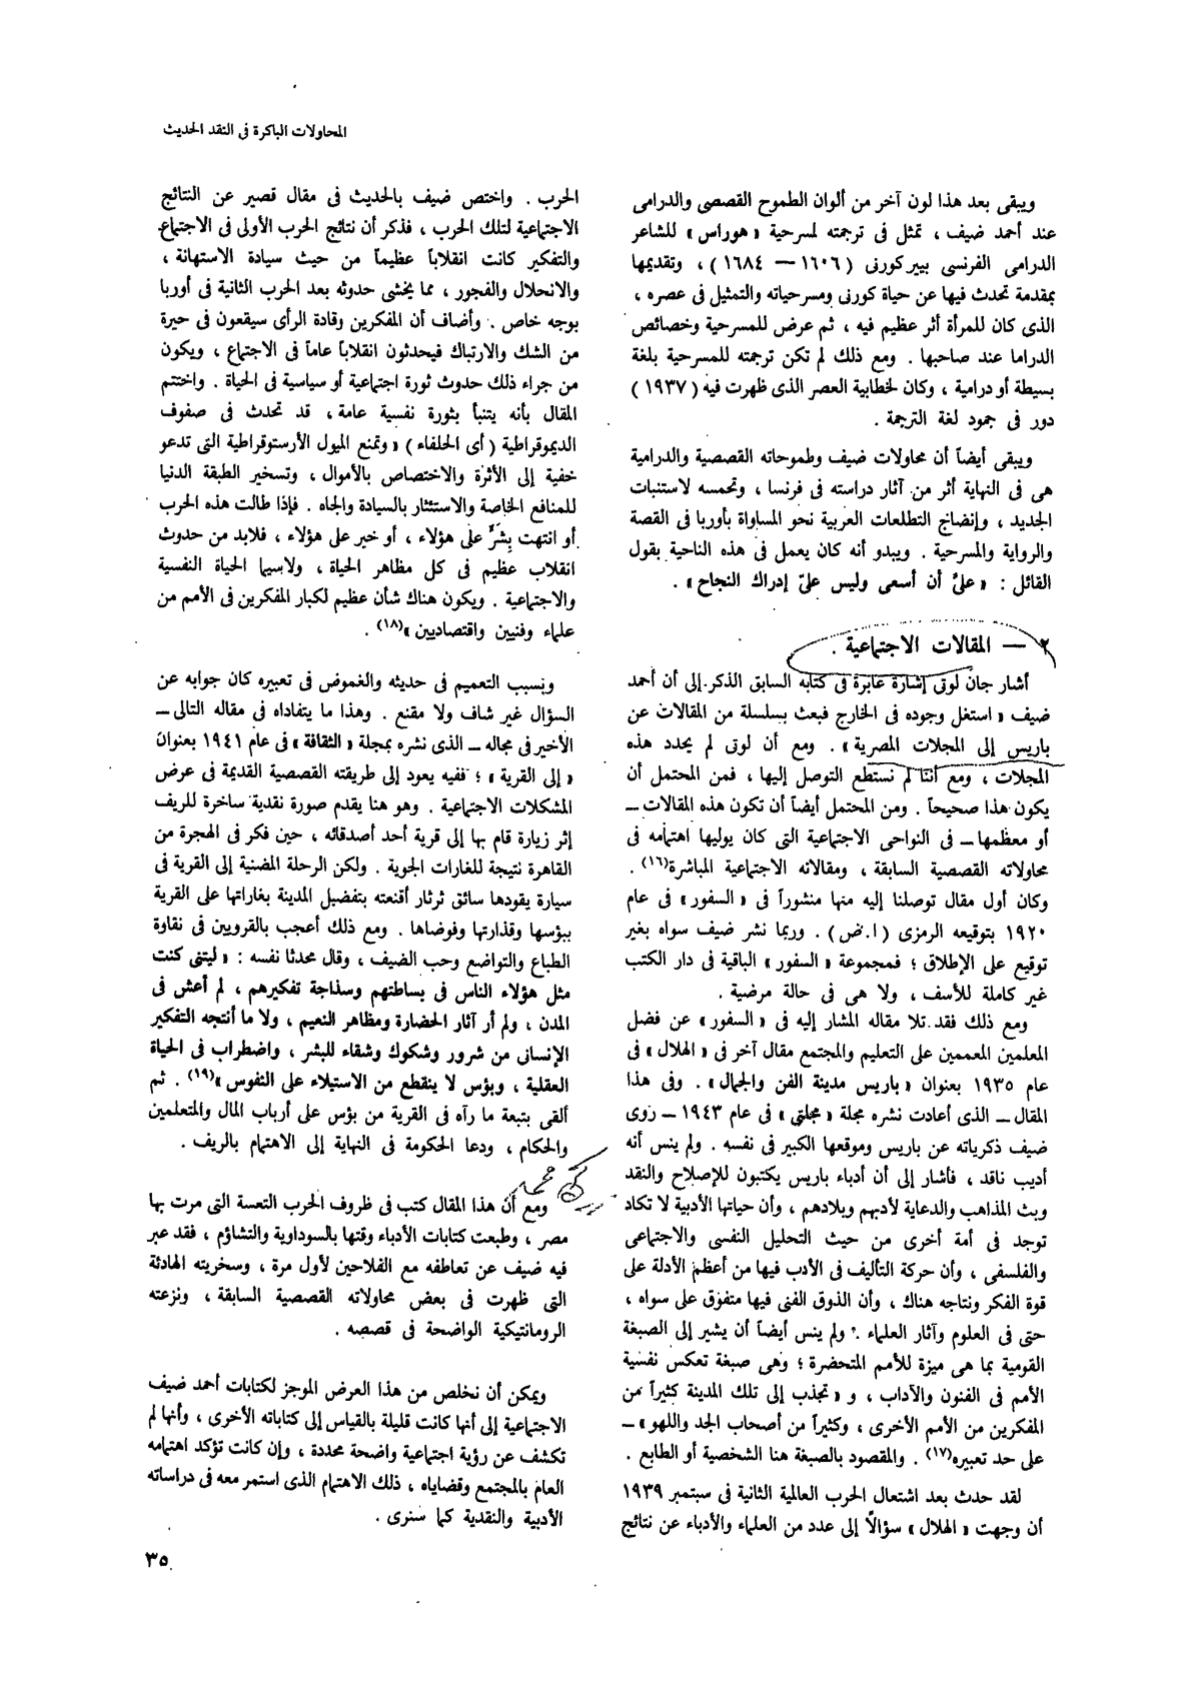 المحاولات الباكرة فى النقد الحديث
ويبقى بعد هذا لون آخر من ألوان الطموح القصصى والدرامى
عند أحمد ضيف ، تمثل فى ترجمته لمسرحية « هوراس » للشاعر
الدرامى الفرنسى بيير كورنى ( ١٦٠٦ — ١٦٨٤ ) ، وتقديمها
بمقدمة تحدث فيها عن حياة كورنى ومسرحياته والتمثيل فى عصره ،
الذى كان للمرأة أثر عظيم فيه ، ثم عرض للمسرحية وخصائص
الدراما عند صاحبها . ومع ذلك لم تكن ترجمته للمسرحية بلغة
بسيطة أو درامية ، وكان لخطابية العصر الذى ظهرت فيه ( ١٩٣٧ )
دور فى جمود لغة الترجمة .
ويبقى أيضاً أن محاولات ضيف وطموحاته القصصية والدرامية
هى فى النهاية أثر من آثار دراسته فى فرنسا ، وتحمسه لاستنبات
الجديد ، وإنضاج التطلعات العربية نحو المساواة بأوربا فى القصة
والرواية والمسرحية . ويبدو أنه كان يعمل فى هذه الناحية بقول
القائل : « علىّ أن أسعى وليس علىّ إدراك النجاح » .
٢ — المقالات الاجتماعية .
أشار جان لوتى إشارة عابرة فى كتابه السابق الذكر إلى أن أحمد
ضيف « استغل وجوده فى الخارج فبعث بسلسلة من المقالات عن
باريس إلى المجلات المصرية » . ومع أن لوتى لم يحدد هذه
المجلات ، ومع أننا لم نستطع التوصل إليها ، فمن المحتمل أن
يكون هذا صحيحاً . ومن المحتمل أيضاً أن تكون هذه المقالات —
أو معظمها — فى النواحى الاجتماعية التى كان يوليها اهتمامه فى
محاولاته القصصية السابقة ، ومقالاته الاجتماعية المباشرة(١٦) .
وكان أول مقال توصلنا إليه منها منشوراً فى « السفور » فى عام
١٩٢٠ بتوقيعه الرمزى ( ا . ض ) . وربما نشر ضيف سواه بغير
توقيع على الإطلاق ؛ فمجموعة « السفور » الباقية فى دار الكتب
غير كاملة للأسف ، ولا هى فى حالة مرضية .
ومع ذلك فقد تلا مقاله المشار إليه فى « السفور » عن فضل
المعلمين المعممين على التعليم والمجتمع مقال آخر فى « الهلال » فى
عام ١٩٣٥ بعنوان « باريس مدينة الفن والجمال » . وفى هذا
المقال — الذى أعادت نشره مجلة « مجلتى » فى عام ١٩٤٣ — روى
ضيف ذكرياته عن باريس وموقعها الكبير فى نفسه . ولم ينس أنه
أديب ناقد ، فأشار إلى أن أدباء باريس يكتبون للإصلاح والنقد
وبث المذاهب والدعاية لأدبهم وبلادهم ، وأن حياتها الأدبية لا تكاد
توجد فى أمة أخرى من حيث التحليل النفسى والاجتماعى
والفلسفى ، وأن حركة التأليف فى الأدب فيها من أعظم الأدلة على
قوة الفكر ونتاجه هناك ، وأن الذوق الفنى فيها متفوق على سواه ،
حتى فى العلوم وآثار العلماء . ولم ينس أيضاً أن يشير إلى الصبغة
القومية بما هى ميزة للأمم المتحضرة ؛ وهى صبغة تعكس نفسية
الأمم فى الفنون والآداب ، و « تجذب إلى تلك المدينة كثيراً من
المفكرين من الأمم الأخرى ، وكثيراً من أصحاب الجد واللهو » —
على حد تعبيره(١٧) . والمقصود بالصبغة هنا الشخصية أو الطابع .
لقد حدث بعد اشتعال الحرب العالمية الثانية فى سبتمبر ١٩٣٩
أن وجهت « الهلال » سؤالاً إلى عدد من العلماء والأدباء عن نتائج
الحرب . واختص ضيف بالحديث فى مقال قصير عن النتائج
الاجتماعية لتلك الحرب ، فذكر أن نتائج الحرب الأولى فى الاجتماع
والتفكير كانت انقلاباً عظيماً من حيث سيادة الاستهانة ،
والانحلال والفجور ، مما يخشى حدوثه بعد الحرب الثانية فى أوربا
بوجه خاص . وأضاف أن المفكرين وقادة الرأى سيقعون فى حيرة
من الشك والارتباك فيحدثون انقلاباً عاماً فى الاجتماع ، ويكون
من جراء ذلك حدوث ثورة اجتماعية أو سياسية فى الحياة . واختتم
المقال بأنه يتنبأ بثورة نفسية عامة ، قد تحدث فى صفوف
الديموقراطية ( أى الحلفاء ) « وتمنع الميول الأرستوقراطية التى تدعو
خفية إلى الأثرة والاختصاص بالأموال ، وتسخير الطبقة الدنيا
للمنافع الخاصة والاستئثار بالسيادة والجاه . فإذا طالت هذه الحرب
أو انتهت بِشَرٍّ على هؤلاء ، أو خير على هؤلاء ، فلابد من حدوث
انقلاب عظيم فى كل مظاهر الحياة ، ولاسيما الحياة النفسية
والاجتماعية . ويكون هناك شأن عظيم لكبار المفكرين فى الأمم من
علماء وفنيين واقتصاديين »(١٨) .
وبسبب التعميم فى حديثه والغموض فى تعبيره كان جوابه عن
السؤال غير شاف ولا مقنع . وهذا ما يتفاداه فى مقاله التالى —
الأخير فى مجاله — الذى نشره بمجلة « الثقافة » فى عام ١٩٤١ بعنوان
« إلى القرية » ؛ ففيه يعود إلى طريقته القصصية القديمة فى عرض
المشكلات الاجتماعية . وهو هنا يقدم صورة نقدية ساخرة للريف
إثر زيارة قام بها إلى قرية أحد أصدقائه ، حين فكر فى الهجرة من
القاهرة نتيجة للغارات الجوية . ولكن الرحلة المضنية إلى القرية فى
سيارة يقودها سائق ثرثار أقنعته بتفضيل المدينة بغاراتها على القرية
ببؤسها وقذارتها وفوضاها . ومع ذلك أعجب بالقرويين فى نقاوة
الطباع والتواضع وحب الضيف ، وقال محدثا نفسه : « ليتنى كنت
مثل هؤلاء الناس فى بساطتهم وسذاجة تفكيرهم ، لم أعش فى
المدن ، ولم أر آثار الحضارة ومظاهر النعيم ، ولا ما أنتجه التفكير
الإنسانى من شرور وشكوك وشقاء للبشر ، واضطراب فى الحياة
العقلية ، وبؤس لا ينقطع من الاستيلاء على النفوس »(١٩) . ثم
ألقى بتبعة ما رآه فى القرية من بؤس على أرباب المال والمتعلمين
والحكام ، ودعا الحكومة فى النهاية إلى الاهتمام بالريف .
ومع أن هذا المقال كتب فى ظروف الحرب التعسة التى مرت بها
مصر ، وطبعت كتابات الأدباء وقتها بالسوداوية والتشاؤم ، فقد عبر
فيه ضيف عن تعاطفه مع الفلاحين لأول مرة ، وسخريته الهادئة
التى ظهرت فى بعض محاولاته القصصية السابقة ، ونزعته
الرومانتيكية الواضحة فى قصصه .
ويمكن أن نخلص من هذا العرض الموجز لكتابات أحمد ضيف
الاجتماعية إلى أنها كانت قليلة بالقياس إلى كتاباته الأخرى ، وأنها لم
تكشف عن رؤية اجتماعية واضحة محددة ، وإن كانت تؤكد اهتمامه
العام بالمجتمع وقضاياه ، ذلك الاهتمام الذى استمر معه فى دراساته
الأدبية والنقدية كما سنرى .
٣٥